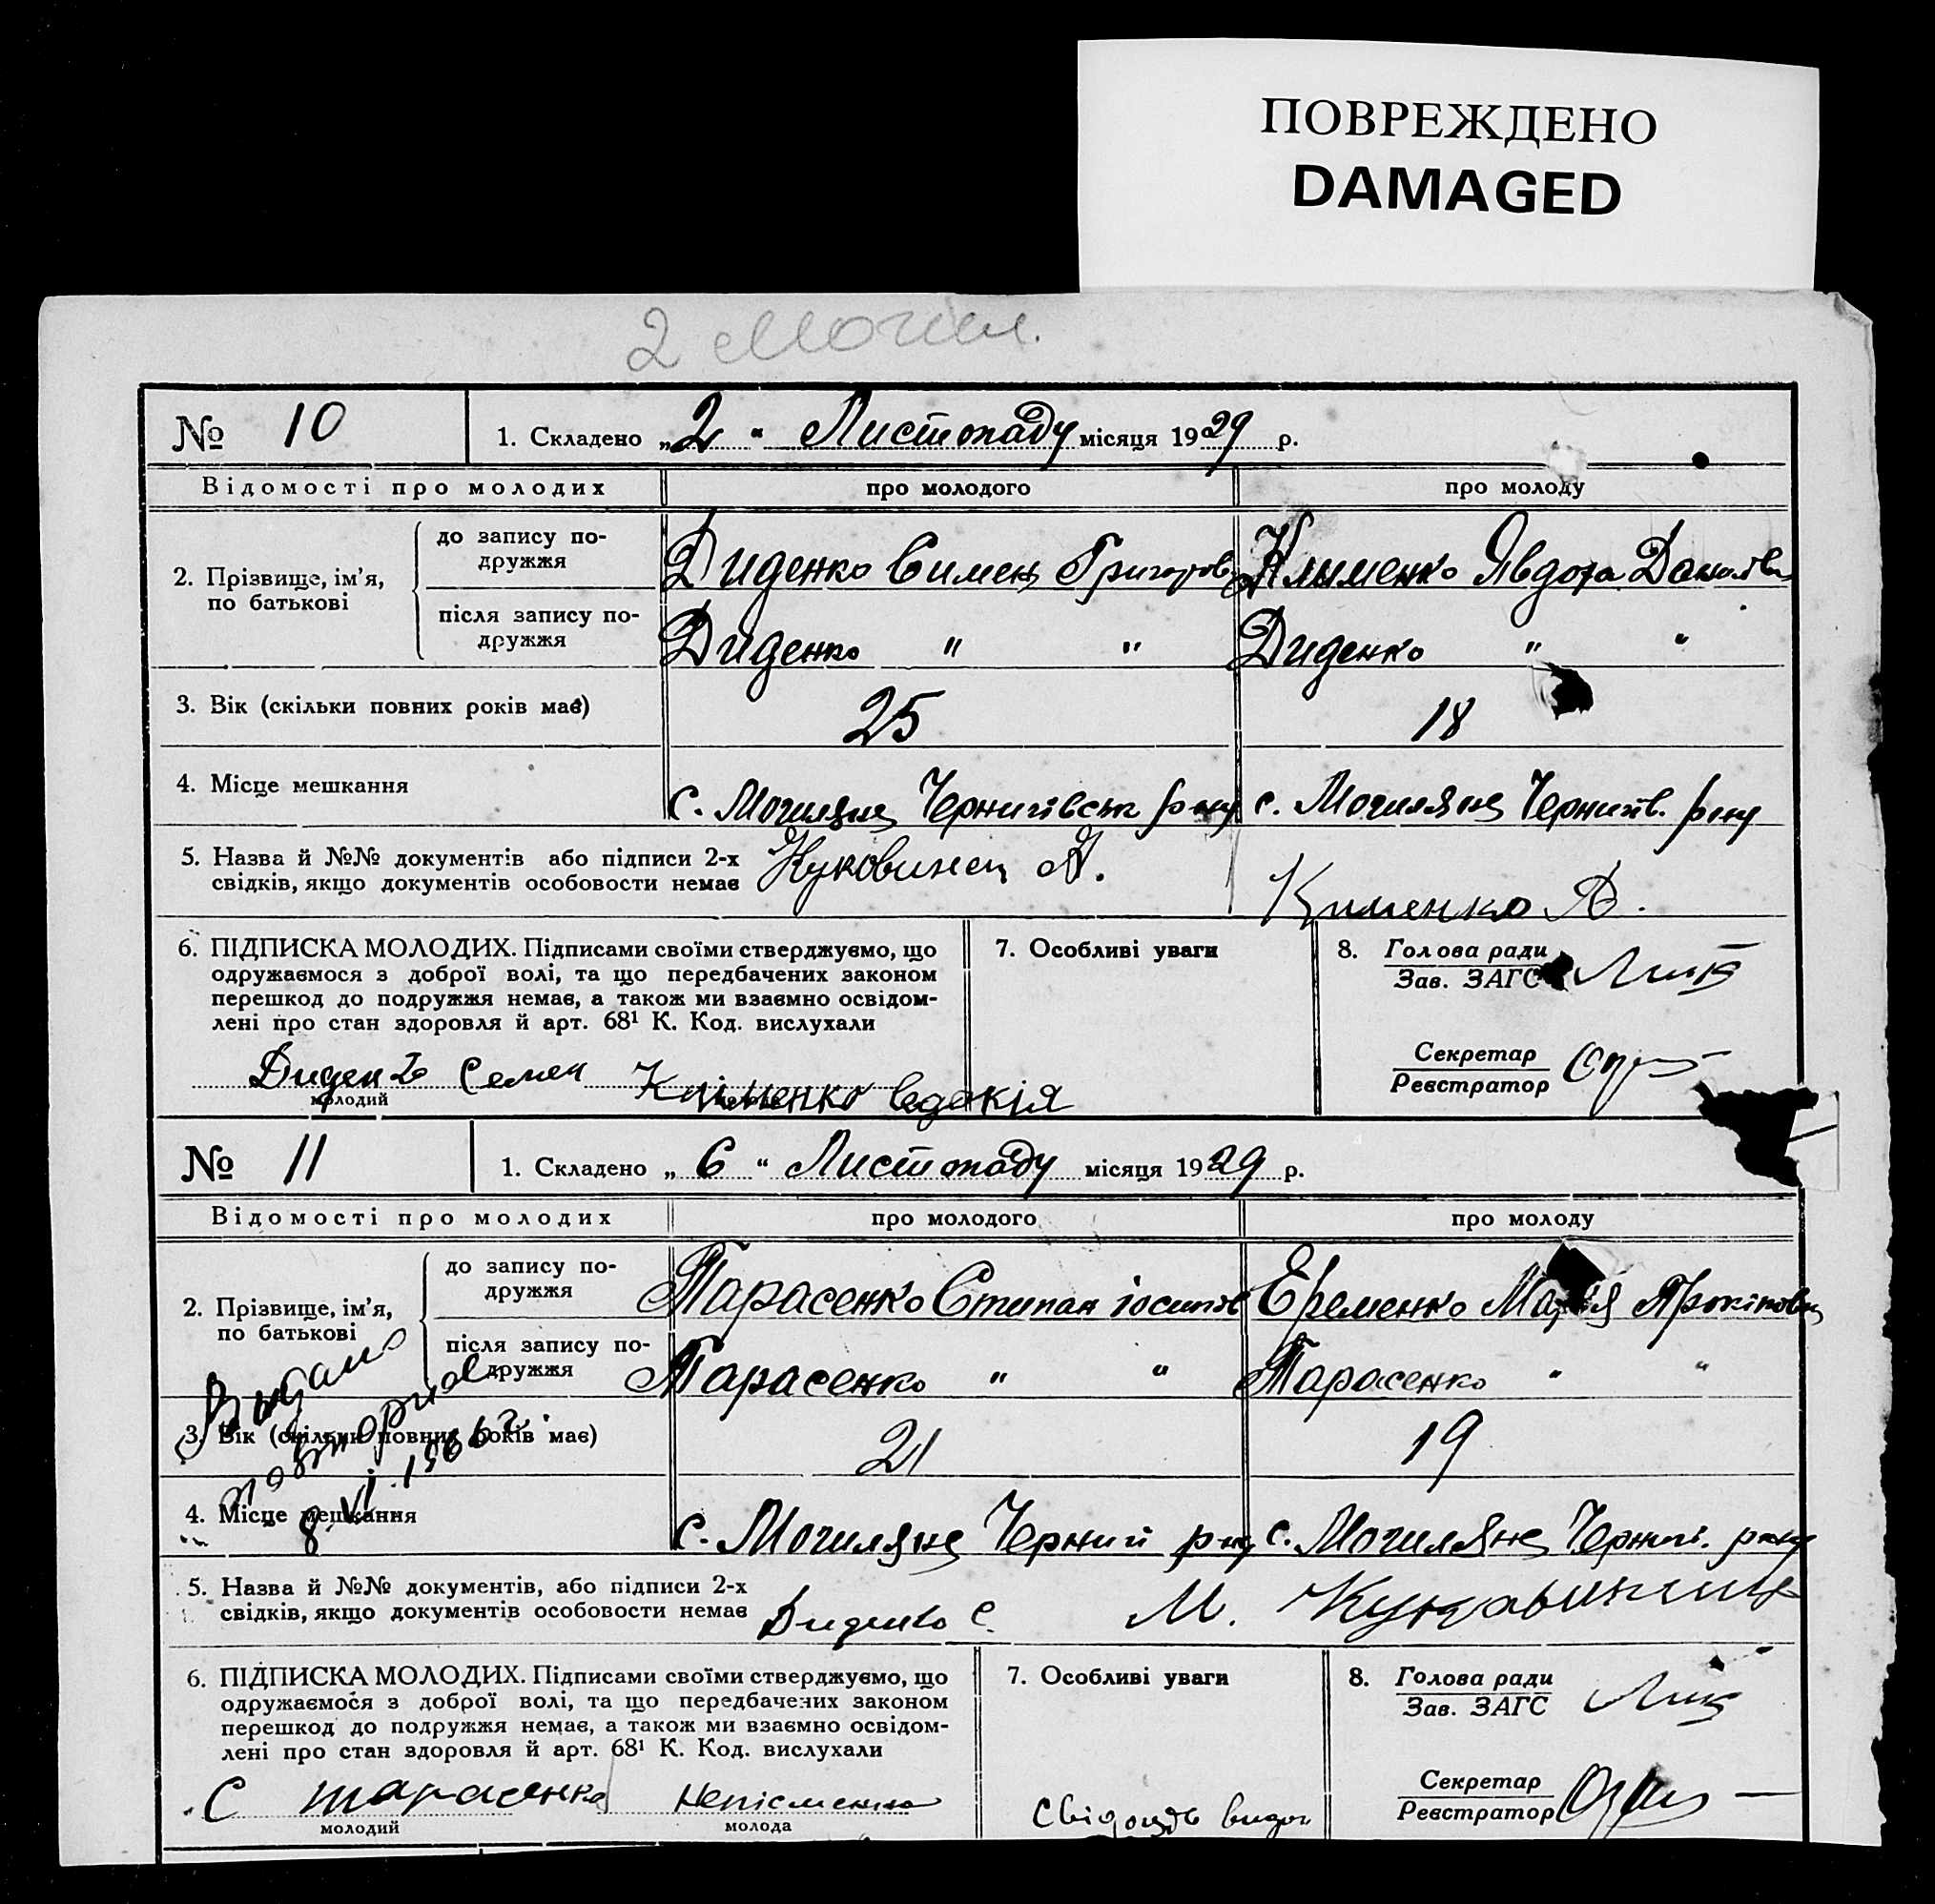 ПОВРЕЖДЕНО
DAMAGED
2 Могил.
№ 10
1. Складено „2“ Листопаду місяця 1929 р.
Відомості про молодих про молодого про молоду
2. Прізвище, ім’я, по батькові
до запису подружжя Диденко Симен Григоров Клименко Явдоха Данилів
після запису подружжя Диденко " " Диденко " "
3. Вік (скільки повних років має) 25 18
4. Місце мешкання с. Могиляне Чернигівськ р-ну с. Могиляне Чернигів. р-ну
5. Назва й №№ документів або підписи 2-х
свідків, якщо документів особовости немає Куковинец Я. Клименко В.
6. ПІДПИСКА МОЛОДИХ. Підписами своїми стверджуємо, що
одружаємося з доброї волі, та що передбачених законом
перешкод до подружжя немає, а також ми взаємно освідом-
лені про стан здоровля й арт. 68¹ К. Код. вислухали
Диденко Семен Кліменко Евдокія
молодий
7. Особливі уваги
8. Голова ради
Зав. ЗАГС
Секретар
Реєстратор
№ 11
1. Складено „6“ Листопаду місяця 1929 р.
Відомості про молодих про молодого про молоду
2. Прізвище, ім’я, по батькові
до запису подружжя Тарасенко Стипан іосипов Еременко Марія Прокіповна
після запису подружжя Тарасенко " " Тарасенко " "
Видано
повторное
8.VI.1966 г.
3. Вік (скільки повних років має) 21 19
4. Місце мешкання с. Могиляне Черниг р-ну с. Могиляне Черниг. р-ну
5. Назва й №№ документів, або підписи 2-х
свідків, якщо документів особовости немає Диденко С. М.
6. ПІДПИСКА МОЛОДИХ. Підписами своїми стверджуємо, що
одружаємося з доброї волі, та що передбачених законом
перешкод до подружжя немає, а також ми взаємно освідом-
лені про стан здоровля й арт. 68¹ К. Код. вислухали
С тарасенко Непісменна
молодий молода
7. Особливі уваги
8. Голова ради
Зав. ЗАГС
Секретар
Реєстратор